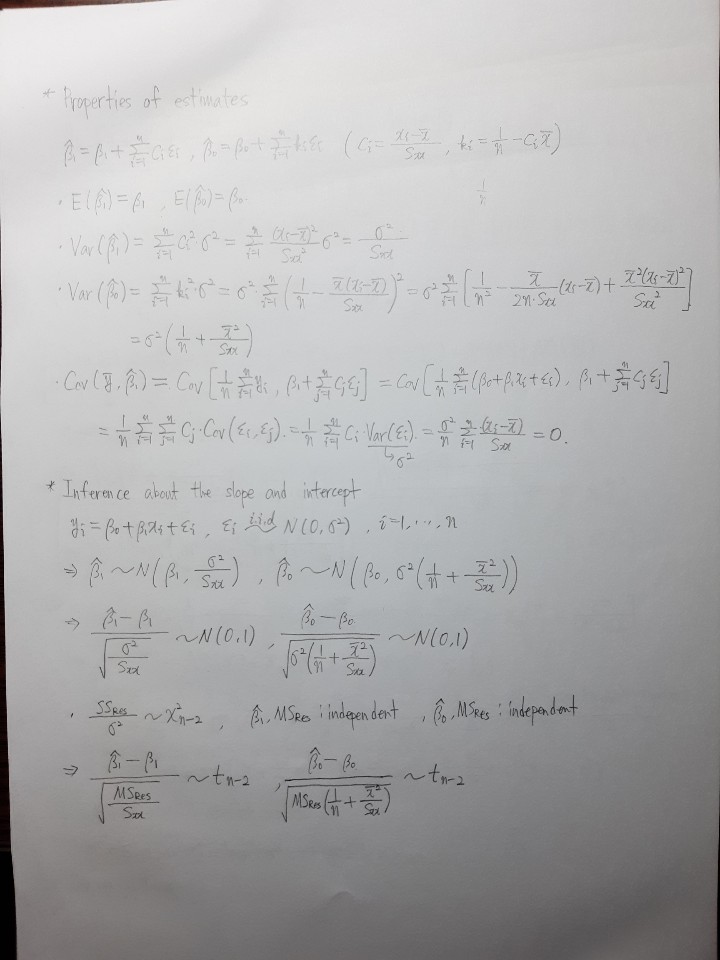 * Properties of estimates
β̂₁ = β₁ + Σⁿᵢ₌₁ Cᵢεᵢ , β̂₀ = β₀ + Σⁿᵢ₌₁ kᵢεᵢ ( Cᵢ = (xᵢ-x̄)/Sxx , kᵢ = 1/n - Cᵢx̄ )
· E(β̂₁) = β₁ , E(β̂₀) = β₀. 1/n
· Var(β̂₁) = Σⁿᵢ₌₁ Cᵢ²·σ² = Σⁿᵢ₌₁ (xᵢ-x̄)²/Sxx² σ² = σ²/Sxx
· Var(β̂₀) = Σⁿᵢ₌₁ kᵢ²·σ² = σ² Σⁿᵢ₌₁ ( 1/n - x̄(xᵢ-x̄)/Sxx )² = σ² Σⁿᵢ₌₁ [ 1/n² - x̄/(2n·Sxx) (xᵢ-x̄) + x̄²(xᵢ-x̄)²/Sxx² ]
= σ² ( 1/n + x̄²/Sxx )
· Cov(ȳ, β̂₁) = Cov[ 1/n Σⁿᵢ₌₁ yᵢ , β₁ + Σⁿⱼ₌₁ Cⱼεⱼ ] = Cov[ 1/n Σⁿᵢ₌₁ (β₀+β₁xᵢ+εᵢ) , β₁ + Σⁿⱼ₌₁ Cⱼεⱼ ]
= 1/n Σⁿᵢ₌₁ Σⁿⱼ₌₁ Cⱼ·Cov(εᵢ, εⱼ). = 1/n Σⁿᵢ₌₁ Cᵢ·Var(εᵢ). = σ²/n Σⁿᵢ₌₁ (xᵢ-x̄)/Sxx = 0.
↳ σ²
* Inference about the slope and intercept
yᵢ = β₀+β₁xᵢ+εᵢ , εᵢ i.i.d ~ N(0, σ²) , i=1, ..., n
⇒ β̂₁ ~ N( β₁, σ²/Sxx ) , β̂₀ ~ N( β₀, σ²( 1/n + x̄²/Sxx ) )
⇒ (β̂₁ - β₁)/√(σ²/Sxx) ~ N(0,1) , (β̂₀ - β₀)/√(σ²( 1/n + x̄²/Sxx )) ~ N(0,1)
· SSRes/σ² ~ χ²ₙ₋₂ , β̂₁, MSRes : independent , β̂₀, MSRes : independent
⇒ (β̂₁ - β₁)/√(MSRes/Sxx) ~ tₙ₋₂ , (β̂₀ - β₀)/√(MSRes( 1/n + x̄²/Sxx )) ~ tₙ₋₂